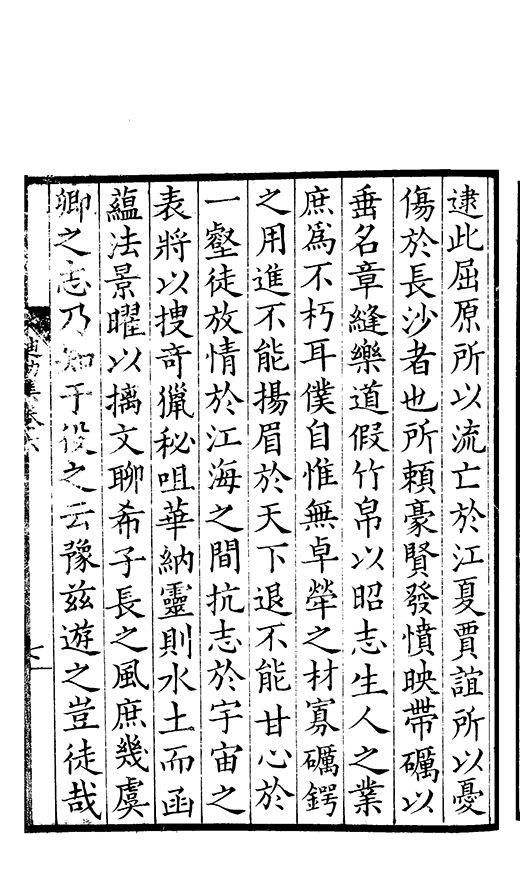 逮此屈原所以流亡於江夏賈誼所以憂
傷於長沙者也所賴豪賢發憤映帶礪以
垂名章縫樂道假竹帛以昭志生人之業
庶爲不朽耳僕自惟無卓犖之材寡礪鍔
之用進不能揚眉於天下退不能甘心於
一壑徒放情於江海之間抗志於宇宙之
表將以搜奇獵秘咀華納靈則水土而函
蘊法景曜以摛文聊希子長之風庶幾虞
卿之志乃知子役之云豫茲遊之豈徒哉
七